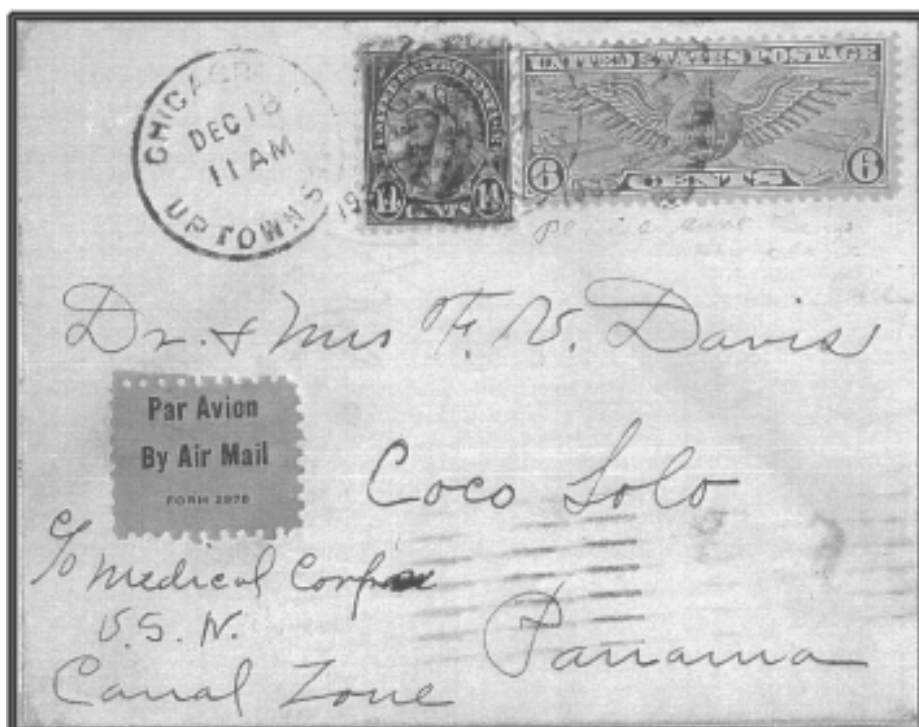 CHICAGO
DEC 18
11 AM
UPTOWN S
UNITED STATES POSTAGE
14 CENTS 14
UNITED STATES POSTAGE
6 CENTS 6
Dr. & Mrs F. V. Davis
Par Avion
By Air Mail
FORM 2978
Coco Solo
c/o Medical Corps
U.S. N.
Panama
Canal Zone